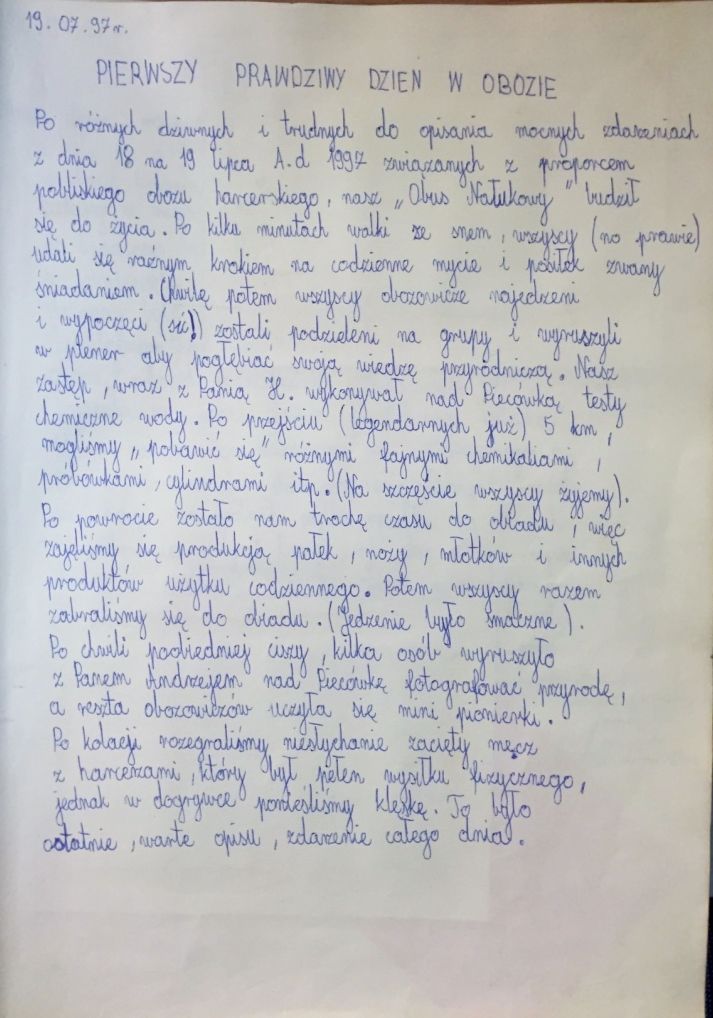 19.07.97r.
PIERWSZY PRAWDZIWY DZIEN W OBOZIE
Po różnych dziwnych i trudnych do opisania nocnych zdarzeniach
z dnia 18 na 19 lipca A.d 1997 związanych z proporcem
pobliskiego obozu harcerskiego, nasz „Obus Nałukowy" budził
się do życia. Po kilku minutach walki ze snem, wszyscy (no prawie)
udali się raźnym krokiem na codzienne mycie i posiłek zwany
śniadaniem. Chwilę potem wszyscy obozowicze najedzeni
i wypoczęci (sić!) zostali podzieleni na grupy i wyruszyli
w plener aby pogłębiać swoją wiedzę przyrodniczą. Nasz
zastęp, wraz z Panią H. wykonywał nad Piecówką testy
chemiczne wody. Po przejściu (legendarnych już) 5 km,
mogliśmy „pobawić się" różnymi fajnymi chemikaliami,
próbówkami, cylindrami itp. (Na szczęście wszyscy żyjemy).
Po powrocie zostało nam trochę czasu do obiadu, więc
zajęliśmy się produkcją pałek, noży, młotków i innych
produktów użytku codziennego. Potem wszyscy razem
zabraliśmy się do obiadu. (Jedzenie było smaczne).
Po chwili poobiedniej ciszy, kilka osób wyruszyło
z Panem Andrzejem nad Piecówkę fotografować przyrodę,
a reszta obozowiczów uczyła się mini pionierki.
Po kolacji rozegraliśmy niesłychanie zacięty mecz
z harcerzami, który był pełen wysiłku fizycznego,
jednak w dogrywce ponieśliśmy klęskę. To było
ostatnie, warte opisu, zdarzenie całego dnia.